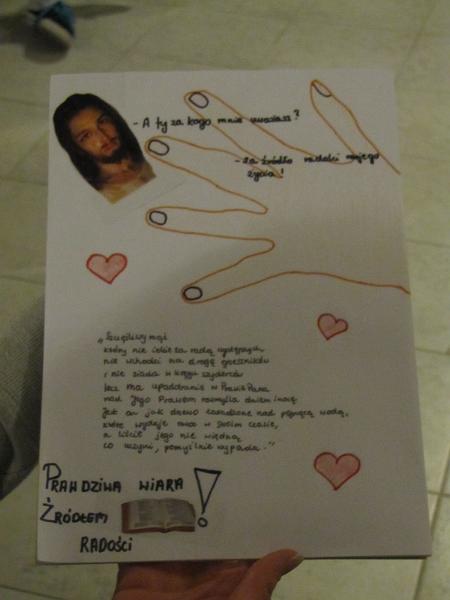 - A ty za kogo mnie uważasz?
- Za źródło radości mojego
życia!
„Szczęśliwy mąż
który nie idzie za radą występnych
nie wchodzi na drogę grzeszników
i nie siada w kręgu szyderców
lecz ma upodobanie w Prawie Pana
nad Jego Prawem rozmyśla dniem i nocą
Jest on jak drzewo zasadzone nad płynącą wodą,
które wydaje owoc w swoim czasie,
a liście jego nie więdną
co uczyni, pomyślnie wypada."
PRAWDZIWA WIARA
ŹRÓDŁEM !
RADOŚCI